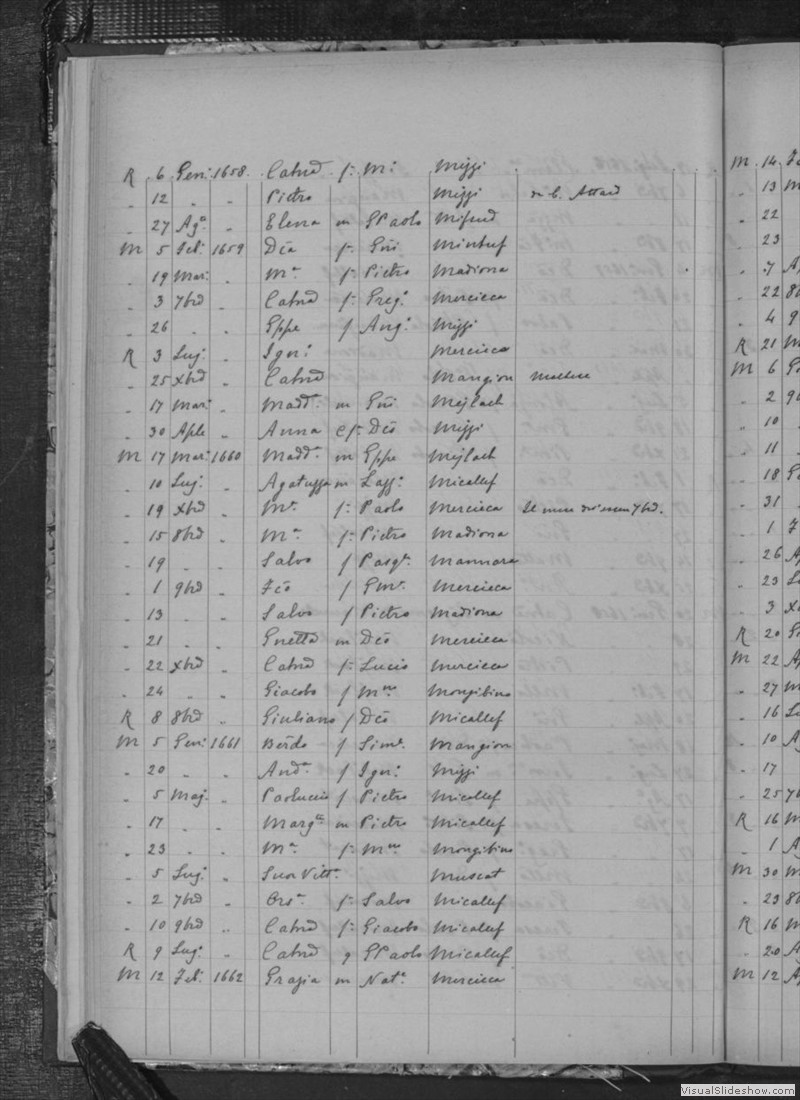 R 6 Gen: 1658 Catnd f: M: Mizzi
" 12 " " Pietro Mizzi Attard
" 27 Ag° " Elena m GPaolo Mifsud
M 5 Feb: 1659 Dca f: Gni Mintuf
" 19 Mar: " Mª f: Pietro Madiona
" 3 7bre " Catnd f: Greg° Mercieca
" 26 " " Gppe f Ang° Mizzi
R 3 Lug: " Ign: Mercieca
" 25 Xbre " Catnd Mangion
" 17 Mar: " Madda m Gni Mejlach
" 30 Aple " Anna e f: Dco Mizzi
M 17 Mar: 1660 Madda m Gppe Mejlach
" 10 Lug: " Agatuzza m Lazz° Micallef
" 19 Xbre " Mª f: Paolo Mercieca
" 15 8bre " Mª f: Pietro Madiona
" 19 " " Salvo f Pasqe Mannara
" 1 9bre " Fco f Gmo Mercieca
" 13 " " Salvo f Pietro Madiona
" 21 " " Gnetta m Dco Mercieca
" 22 Xbre " Catnd f: Lucio Mercieca
" 24 " " Giacobo f Mno Mongibino
R 8 8bre " Giuliano f Dco Micallef
M 5 Gen: 1661 Berdo f Simne Mangion
" 20 " " Andª f Ign: Mizzi
" 5 Mag: " Paoluccio f Pietro Micallef
" 17 " " Margta m Pietro Micallef
" 23 " " Mª f: Mno Mongibino
" 5 Lug: " Suor Vittª Muscat
" 2 7bre " Orsª f: Salvo Micallef
" 10 9bre " Catnd f: Giacobo Micallef
R 9 Lug: " Catnd q GPaolo Micallef
M 12 Feb: 1662 Grazia m Natª Mercieca
M 14
" 13
" 22
" 23
" 7
" 22
" 4
R 21
M 6
" 2
" 10
" 11
" 18
" 31
" 1
" 26
" 23
" 3
R 20
M 22
" 27
" 16
" 10
" 17
" 25
R 16
" 1
M 30
" 23
R 16
" 20
M 12
VisualSlideshow.com